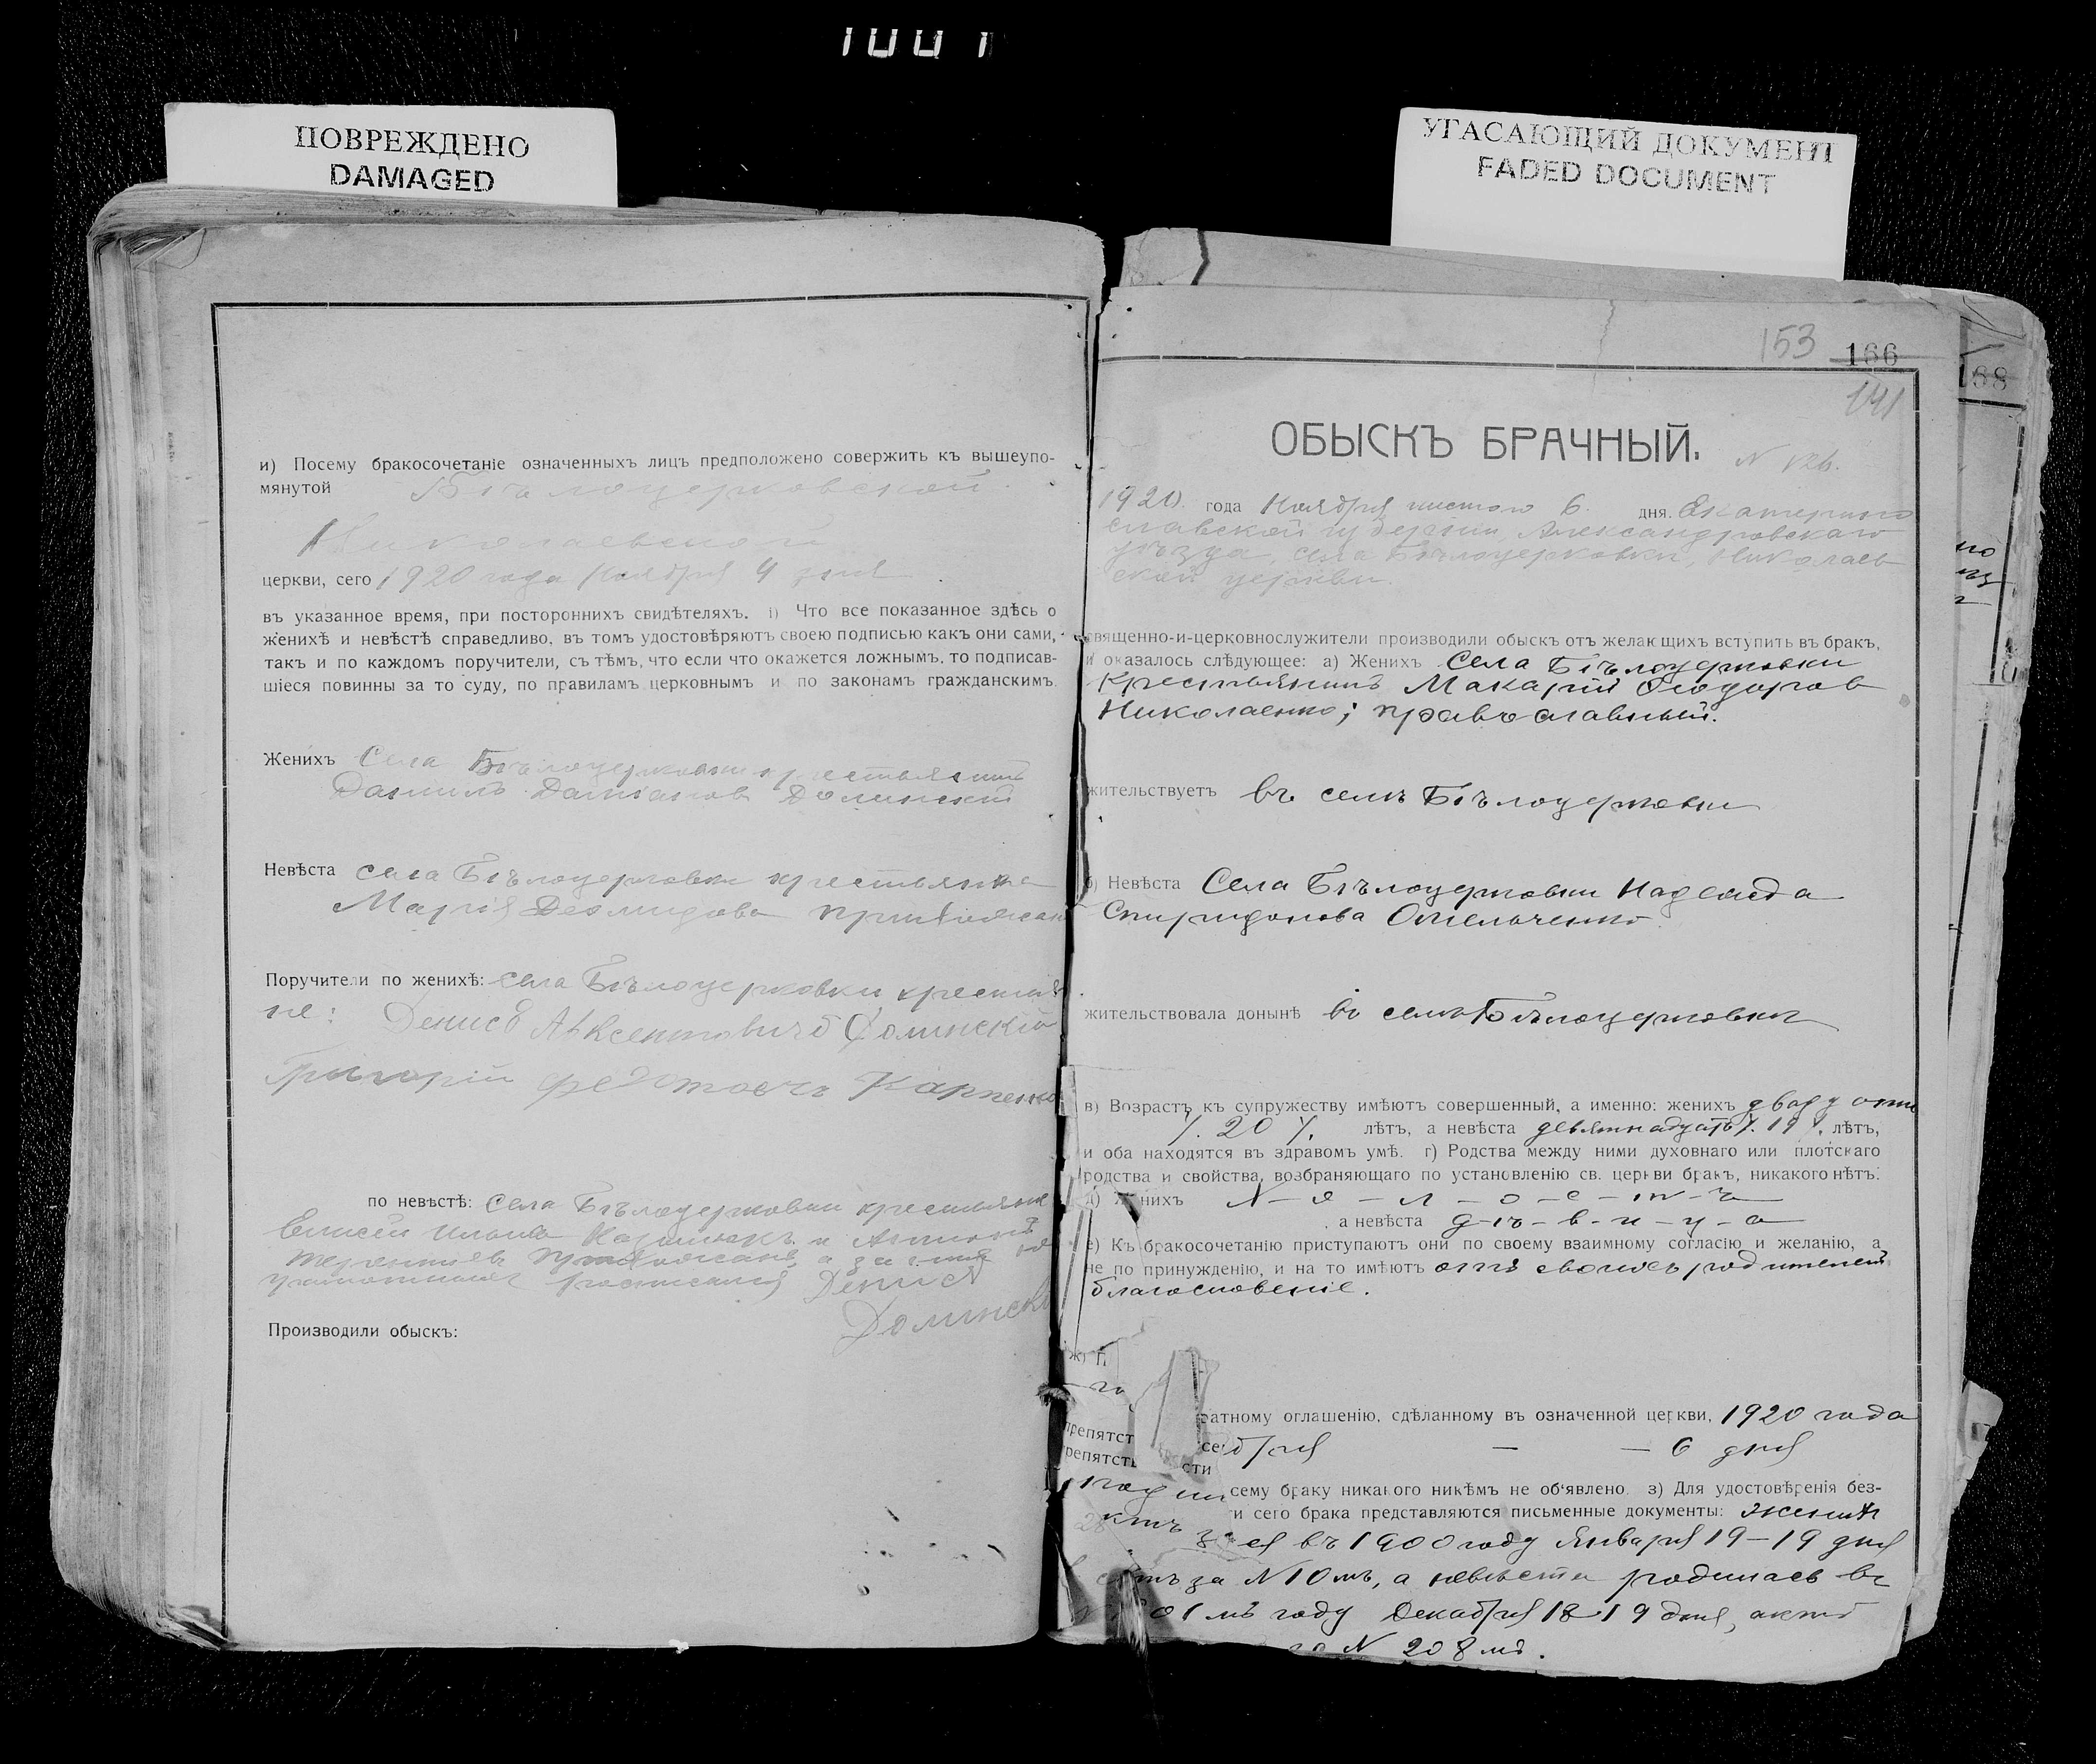 1001
ПОВРЕЖДЕНО
DAMAGED
УГАСАЮЩИЙ ДОКУМЕНТ
FADED DOCUMENT
и) Посему бракосочетаніе означенныхъ лицъ предположено совержить къ вышеупо-
мянутой Бѣлоцерковской
Николаевской
церкви, сего 1920 года Ноября 9 дня
въ указанное время, при постороннихъ свидѣтеляхъ. і) Что все показанное здѣсь о
женихѣ и невѣстѣ справедливо, въ томъ удостовѣряютъ своею подписью какъ они сами,
такъ и по каждомъ поручители, съ тѣмъ, что если что окажется ложнымъ, то подписав-
шіеся повинны за то суду, по правиламъ церковнымъ и по законамъ гражданскимъ.
Женихъ Села Бѣлоцерковки крестьянинъ
Даніилъ Даміановъ Долинскій
Невѣста села Бѣлоцерковки крестьянка
Марія Деомидова
Поручители по женихѣ: села Бѣлоцерковки крестья
не: Денисъ Авксентовичъ Долинскій
Григорій Федотовъ Карпенко
по невѣстѣ: села Бѣлоцерковки крестьяне
Елисей и Антонъ
Терентіевъ а за
росписался Денисъ
Долинскі
Производили обыскъ:
153 166
168
141
ОБЫСКЪ БРАЧНЫЙ.
N 126.
1920 года Ноября шестого 6 дня. Екатерино
славской губерніи, Александровскаго
уѣзда, села Бѣлоцерковки, Николаев
ской церкви.
священно-и-церковнослужители производили обыскъ отъ желающихъ вступить въ бракъ,
и оказалось слѣдующее: а) Женихъ Села Бѣлоцерковки
крестьянинъ Макарій Ѳеодоровъ
Николаенко; православный.
жительствуетъ въ селѣ Бѣлоцерковки
б) Невѣста Села Бѣлоцерковки Надежда
Спиридонова Омельченко
жительствовала донынѣ въ селѣ Бѣлоцерковки
в) Возрастъ къ супружеству имѣютъ совершенный, а именно: женихъ двадцати
/. 20 /. лѣтъ, а невѣста девятнадцать /. 19 /. лѣтъ,
и оба находятся въ здравомъ умѣ. г) Родства между ними духовнаго или плотскаго
родства и свойства, возбраняющаго по установленію св. церкви бракъ, никакого нѣтъ:
д) Женихъ х-о-л-о-с-т-ъ
а невѣста д-ѣ-в-и-ц-а
е) Къ бракосочетанію приступаютъ они по своему взаимному согласію и желанію, а
не по принужденію, и на то имѣютъ отъ своихъ родителей
благословеніе.
ж) П
ратному оглашенію, сдѣланному въ означенной церкви, 1920 года
бря — — 6 дня
препятст
репятст сти
сему браку никакого никѣмъ не объявлено. з) Для удостовѣренія без-
и сего брака представляются письменные документы: жених
въ 1900 году Января 19–19 дня
за N 10мъ, а невѣста родилась въ
01мъ году Декабря 18–19 дня, актъ
за N 208мъ.